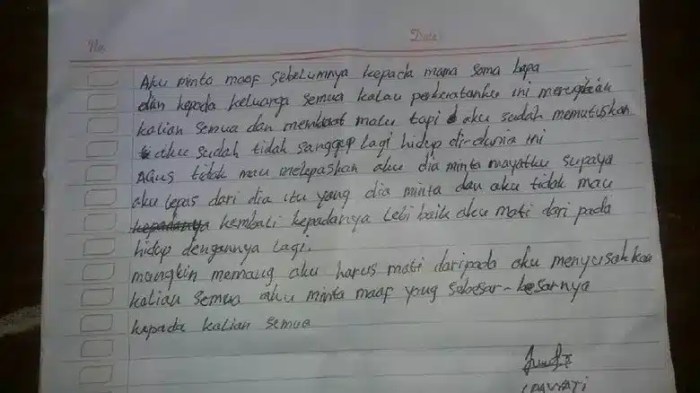 No.
Date:
Aku minta maaf sebelumnya kepada mama sama bapa
dan kepada keluarga semua kalau perbuatanku ini merugikan
kalian semua dan membuat malu tapi aku sudah memutuskan
aku sudah tidak sanggup lagi hidup di dunia ini
Agus tidak mau melepaskan aku dia minta mayatku supaya
aku lepas dari dia itu yang dia minta dan aku tidak mau
kepadanya kembali kepadanya lebi baik aku mati dari pada
hidup dengannya lagi.
mungkin memang aku harus mati daripada aku menyusahkan
kalian semua aku minta maaf yang sebesar-besarnya
kepada kalian semua